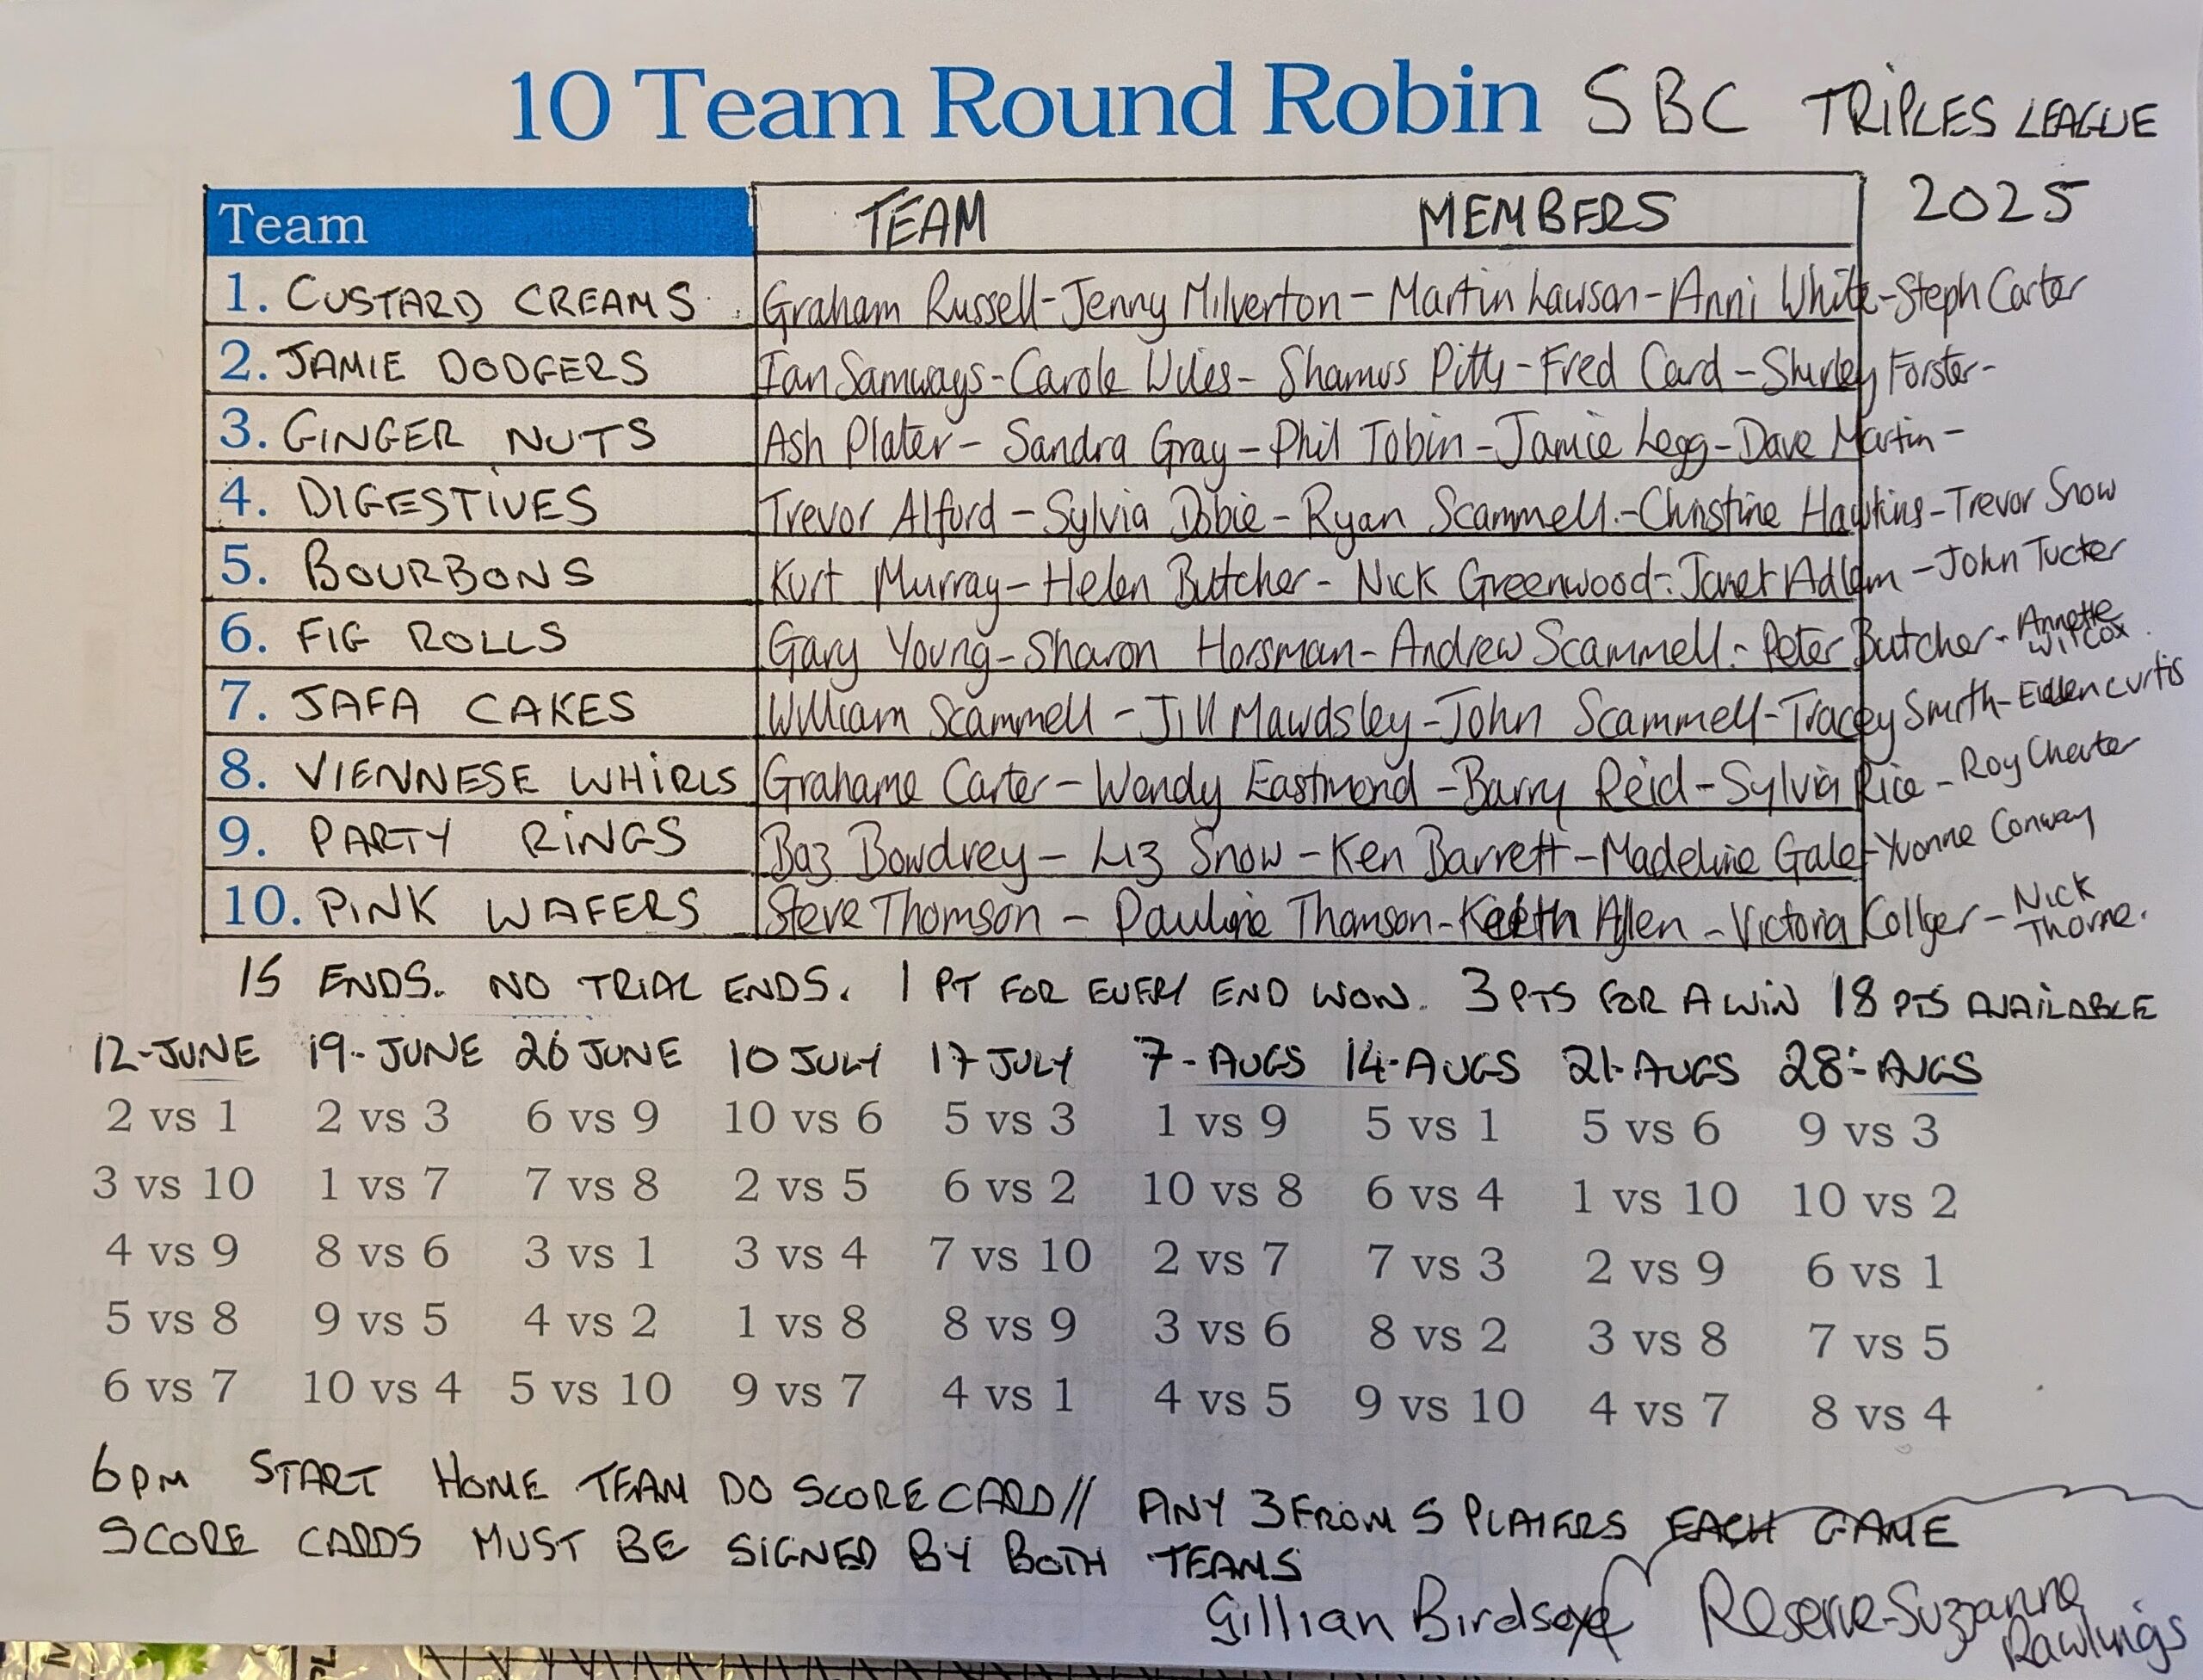 10 Team Round Robin SBC TRIPLES LEAGUE
2025
Team TEAM MEMBERS
1. CUSTARD CREAMS Graham Russell - Jenny Milverton - Martin Lawson - Anni White - Steph Carter
2. JAMIE DODGERS Ian Samways - Carole Wiles - Shamus Pitty - Fred Card - Shirley Forster -
3. GINGER NUTS Ash Plater - Sandra Gray - Phil Tobin - Jamie Legg - Dave Martin -
4. DIGESTIVES Trevor Alford - Sylvia Dobie - Ryan Scammell. - Christine Hawkins - Trevor Snow
5. BOURBONS Kurt Murray - Helen Butcher - Nick Greenwood - Janet Adlem - John Tucker
6. FIG ROLLS Gary Young - Sharon Horsman - Andrew Scammell. - Peter Butcher - Annette Wilcox.
7. JAFA CAKES William Scammell - Jill Mawdsley - John Scammell - Tracey Smith - Eileen Curtis
8. VIENNESE WHIRLS Grahame Carter - Wendy Eastmond - Barry Reid - Sylvia Rice - Roy
9. PARTY RINGS Baz Bowdrey - Liz Snow - Ken Barrett - Madeline Gale - Yvonne Conway
10. PINK WAFERS Steve Thomson - Pauline Thomson - Keith Allen - Victoria Collyer - Nick Thorne.
15 ENDS. NO TRIAL ENDS. 1 PT FOR EVERY END WON. 3 PTS FOR A WIN 18 PTS AVAILABLE
12-JUNE 19-JUNE 26 JUNE 10 JULY 17 JULY 7-AUGS 14-AUGS 21-AUGS 28-AUGS
2 vs 1 2 vs 3 6 vs 9 10 vs 6 5 vs 3 1 vs 9 5 vs 1 5 vs 6 9 vs 3
3 vs 10 1 vs 7 7 vs 8 2 vs 5 6 vs 2 10 vs 8 6 vs 4 1 vs 10 10 vs 2
4 vs 9 8 vs 6 3 vs 1 3 vs 4 7 vs 10 2 vs 7 7 vs 3 2 vs 9 6 vs 1
5 vs 8 9 vs 5 4 vs 2 1 vs 8 8 vs 9 3 vs 6 8 vs 2 3 vs 8 7 vs 5
6 vs 7 10 vs 4 5 vs 10 9 vs 7 4 vs 1 4 vs 5 9 vs 10 4 vs 7 8 vs 4
6PM START HOME TEAM DO SCORE CARD // ANY 3 FROM 5 PLAYERS EACH GAME
SCORE CARDS MUST BE SIGNED BY BOTH TEAMS
Gillian Birdseye Reserve - Suzanne Rawlings